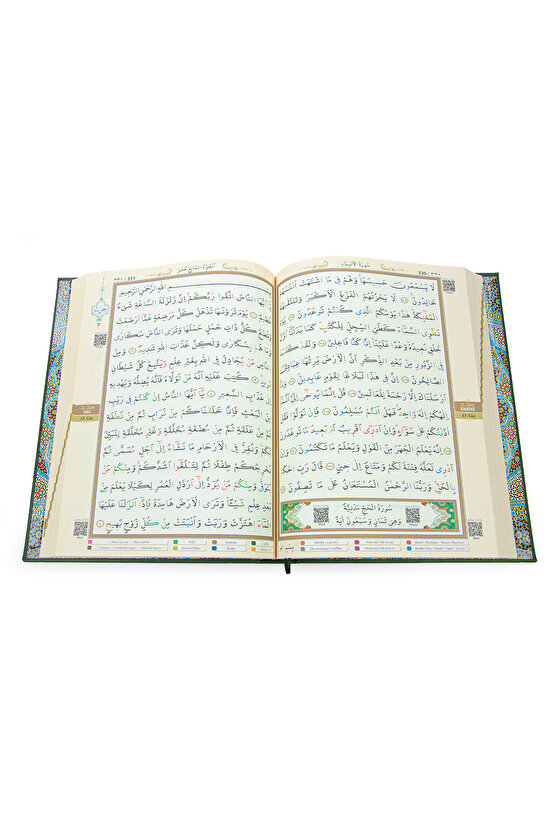 سُورَةُ الْأَنْبِيَاءِ
330 / ٣٣٠
لَا يَسْمَعُونَ حَسِيسَهَا وَهُمْ فِي مَا اشْتَهَتْ أَنْفُسُهُمْ
خَالِدُونَ لَا يَحْزُنُهُمُ الْفَزَعُ الْأَكْبَرُ وَتَتَلَقَّاهُمُ
الْمَلَائِكَةُ هَذَا يَوْمُكُمُ الَّذِي كُنْتُمْ تُوعَدُونَ يَوْمَ
نَطْوِي السَّمَاءَ كَطَيِّ السِّجِلِّ لِلْكُتُبِ كَمَا بَدَأْنَا أَوَّلَ
خَلْقٍ نُعِيدُهُ وَعْدًا عَلَيْنَا إِنَّا كُنَّا فَاعِلِينَ وَلَقَدْ كَتَبْنَا
فِي الزَّبُورِ مِنْ بَعْدِ الذِّكْرِ أَنَّ الْأَرْضَ يَرِثُهَا عِبَادِيَ
الصَّالِحُونَ إِنَّ فِي هَذَا لَبَلَاغًا لِقَوْمٍ عَابِدِينَ وَمَا
أَرْسَلْنَاكَ إِلَّا رَحْمَةً لِلْعَالَمِينَ قُلْ إِنَّمَا يُوحَى إِلَيَّ أَنَّمَا
إِلَهُكُمْ إِلَهٌ وَاحِدٌ فَهَلْ أَنْتُمْ مُسْلِمُونَ فَإِنْ تَوَلَّوْا فَقُلْ
آذَنْتُكُمْ عَلَى سَوَاءٍ وَإِنْ أَدْرِي أَقَرِيبٌ أَمْ بَعِيدٌ مَا تُوعَدُونَ
إِنَّهُ يَعْلَمُ الْجَهْرَ مِنَ الْقَوْلِ وَيَعْلَمُ مَا تَكْتُمُونَ وَإِنْ
أَدْرِي لَعَلَّهُ فِتْنَةٌ لَكُمْ وَمَتَاعٌ إِلَى حِينٍ قَالَ رَبِّ احْكُمْ
بِالْحَقِّ وَرَبُّنَا الرَّحْمَنُ الْمُسْتَعَانُ عَلَى مَا تَصِفُونَ
سُورَةُ الْحَجِّ مَدَنِيَّةٌ
وَهِيَ ثَمَانٍ وَسَبْعُونَ آيَةً
ENBİYÂ
17. Cüz
٣٣١ / 331
اَلْجُزْءُ السَّابِعَ عَشَرَ
اللهِ الرَّحْمَنِ الرَّحِيمِ
يَا أَيُّهَا النَّاسُ اتَّقُوا رَبَّكُمْ إِنَّ زَلْزَلَةَ السَّاعَةِ شَيْءٌ
عَظِيمٌ يَوْمَ تَرَوْنَهَا تَذْهَلُ كُلُّ مُرْضِعَةٍ عَمَّا أَرْضَعَتْ
وَتَضَعُ كُلُّ ذَاتِ حَمْلٍ حَمْلَهَا وَتَرَى النَّاسَ سُكَارَى
وَمَا هُمْ بِسُكَارَى وَلَكِنَّ عَذَابَ اللهِ شَدِيدٌ وَمِنَ
النَّاسِ مَنْ يُجَادِلُ فِي اللهِ بِغَيْرِ عِلْمٍ وَيَتَّبِعُ كُلَّ شَيْطَانٍ
مَرِيدٍ كُتِبَ عَلَيْهِ أَنَّهُ مَنْ تَوَلَّاهُ فَأَنَّهُ يُضِلُّهُ وَيَهْدِيهِ
إِلَى عَذَابِ السَّعِيرِ يَا أَيُّهَا النَّاسُ إِنْ كُنْتُمْ فِي رَيْبٍ
مِنَ الْبَعْثِ فَإِنَّا خَلَقْنَاكُمْ مِنْ تُرَابٍ ثُمَّ مِنْ نُطْفَةٍ
ثُمَّ مِنْ عَلَقَةٍ ثُمَّ مِنْ مُضْغَةٍ مُخَلَّقَةٍ وَغَيْرِ مُخَلَّقَةٍ لِنُبَيِّنَ
لَكُمْ وَنُقِرُّ فِي الْأَرْحَامِ مَا نَشَاءُ إِلَى أَجَلٍ مُسَمًّى ثُمَّ
نُخْرِجُكُمْ طِفْلًا ثُمَّ لِتَبْلُغُوا أَشُدَّكُمْ وَمِنْكُمْ مَنْ
يُتَوَفَّى وَمِنْكُمْ مَنْ يُرَدُّ إِلَى أَرْذَلِ الْعُمُرِ لِكَيْلَا يَعْلَمَ مِنْ
بَعْدِ عِلْمٍ شَيْئًا وَتَرَى الْأَرْضَ هَامِدَةً فَإِذَا أَنْزَلْنَا عَلَيْهَا
الْمَاءَ اهْتَزَّتْ وَرَبَتْ وَأَنْبَتَتْ مِنْ كُلِّ زَوْجٍ بَهِيجٍ
HAC
17. Cüz